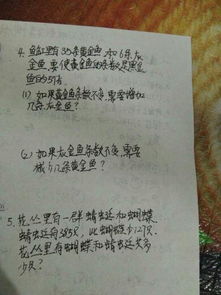 4. 鱼缸里有35条黄金鱼,和6条灰
金鱼,要使黄金鱼的条数是黑金
鱼的5倍
(1) 如果黄金鱼条数不变,需要增加
几条灰金鱼?
(2) 如果灰金鱼条数不变,需要
减少几条黄金鱼?
5. 花丛里有一群蜻蜓和蝴蝶
蜻蜓有38只,比蝴蝶少12只.
花丛里有蝴蝶和蜻蜓共多
少只?